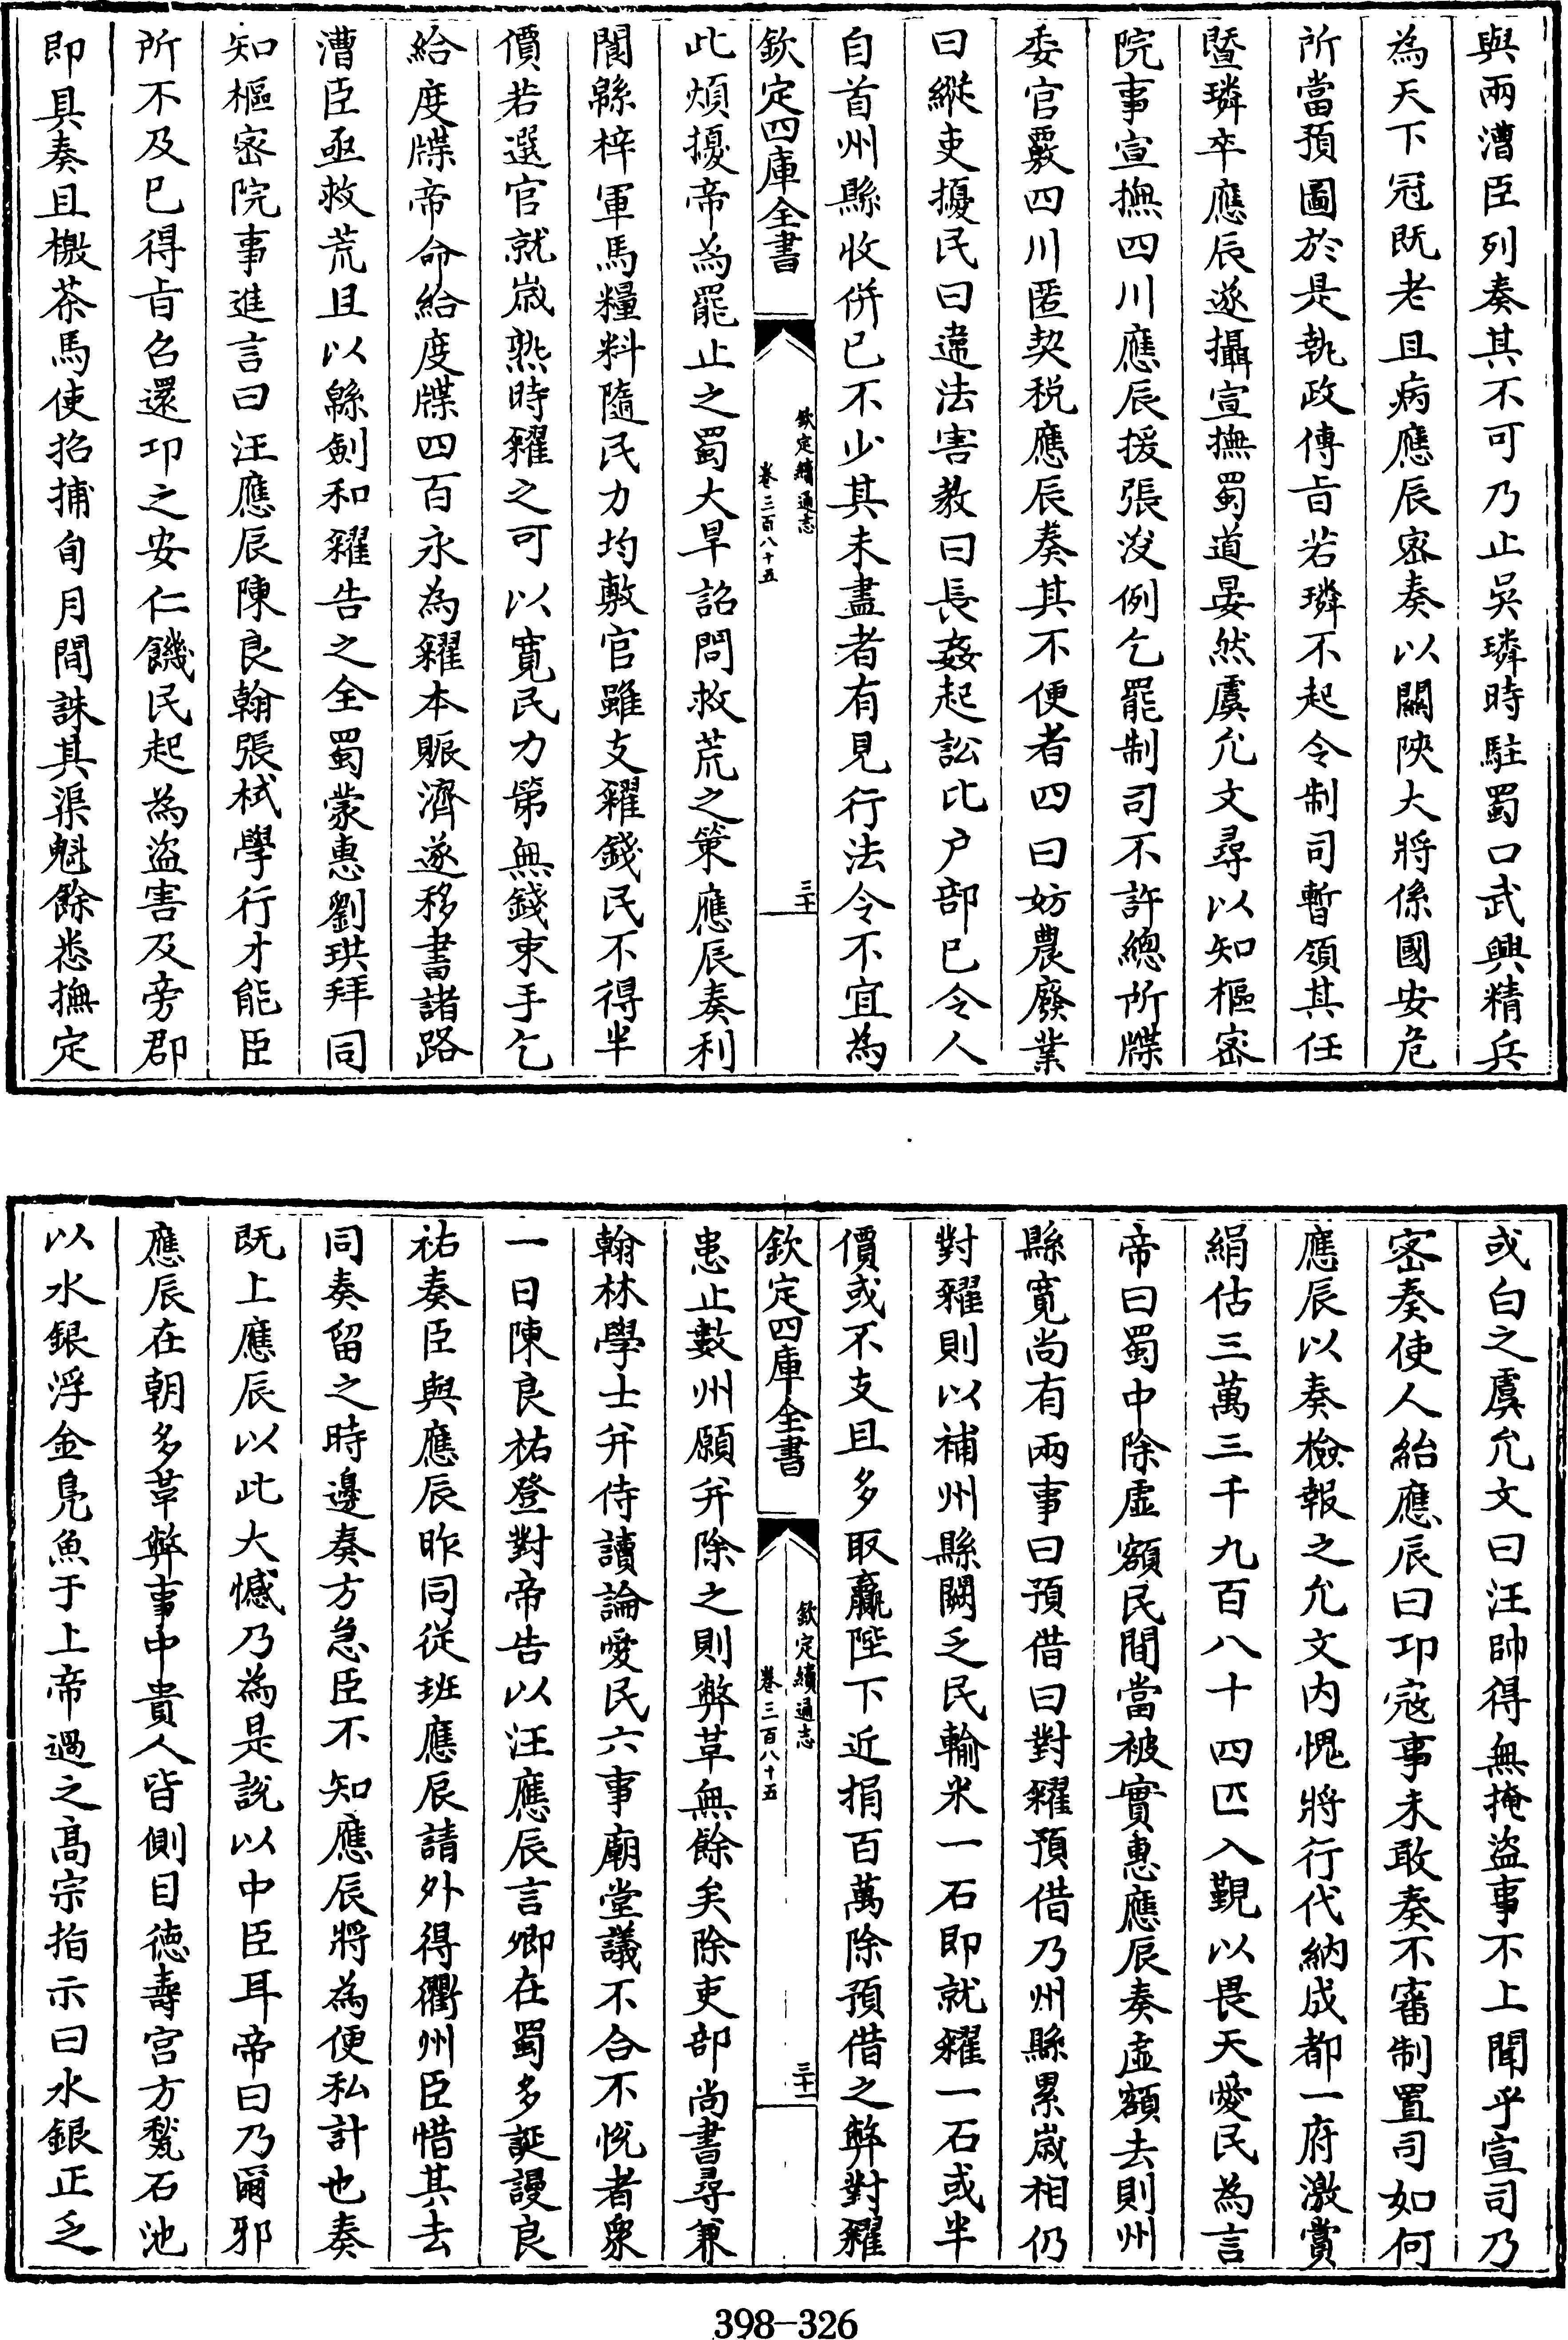 與兩漕臣列奏其不可乃止吳璘時駐蜀口武興精兵
為天下冠既老且病應辰密奏以關陝大將係國安危
所當預圖於是執政傳㫖若璘不起令制司暫領其任
暨璘卒應辰遂攝宣撫蜀道晏然虞允文尋以知樞密
院事宣撫四川應辰援張浚例乞罷制司不許總所牒
委官覈四川匿契税應辰奏其不便者四曰妨農廢業
曰縱吏擾民曰違法害教曰長姦起訟比户部已令人
自首州縣收併已不少其未盡者有見行法令不宜為
欽定四庫全書
欽定續通志
卷三百八十五
三十
此煩擾帝為罷止之蜀大旱詔問救荒之策應辰奏利
閬緜梓軍馬糧料隨民力均敷官雖支糴錢民不得半
價若選官就嵗熟時糴之可以寛民力第無錢束手乞
給度牒帝命給度牒四百永為糴本賑濟遂移書諸路
漕臣亟救荒且以緜劍和糴告之全蜀蒙惠劉珙拜同
知樞密院事進言曰汪應辰陳良翰張栻學行才能臣
所不及已得㫖召還卭之安仁饑民起為盗害及旁郡
即具奏且檄茶馬使招捕旬月間誅其渠魁餘悉撫定
或白之虞允文曰汪帥得無掩盜事不上聞乎宣司乃
密奏使人紿應辰曰卭寇事未敢奏不審制置司如何
應辰以奏檢報之允文内愧將行代納成都一府激賞
絹估三萬三千九百八十四匹入覲以畏天愛民為言
帝曰蜀中除虛額民間當被實惠應辰奏虛額去則州
縣寛尚有兩事曰預借曰對糴預借乃州縣累嵗相仍
對糴則以補州縣闕乏民輸米一石即就糴一石或半
價或不支且多取贏陛下近捐百萬除預借之弊對糴
欽定四庫全書
欽定續通志
卷三百八十五
三十一
患止數州願并除之則弊革無餘矣除吏部尚書尋兼
翰林學士并侍讀論愛民六事廟堂議不合不恱者衆
一日陳良祐登對帝告以汪應辰言卿在蜀多誕謾良
祐奏臣與應辰昨同從班應辰請外得衢州臣惜其去
同奏留之時邊奏方急臣不知應辰將為便私計也奏
既上應辰以此大憾乃為是説以中臣耳帝曰乃爾邪
應辰在朝多革弊事中貴人皆側目徳壽宫方甃石池
以水銀浮金鳬魚于上帝過之高宗指示曰水銀正乏
398-326